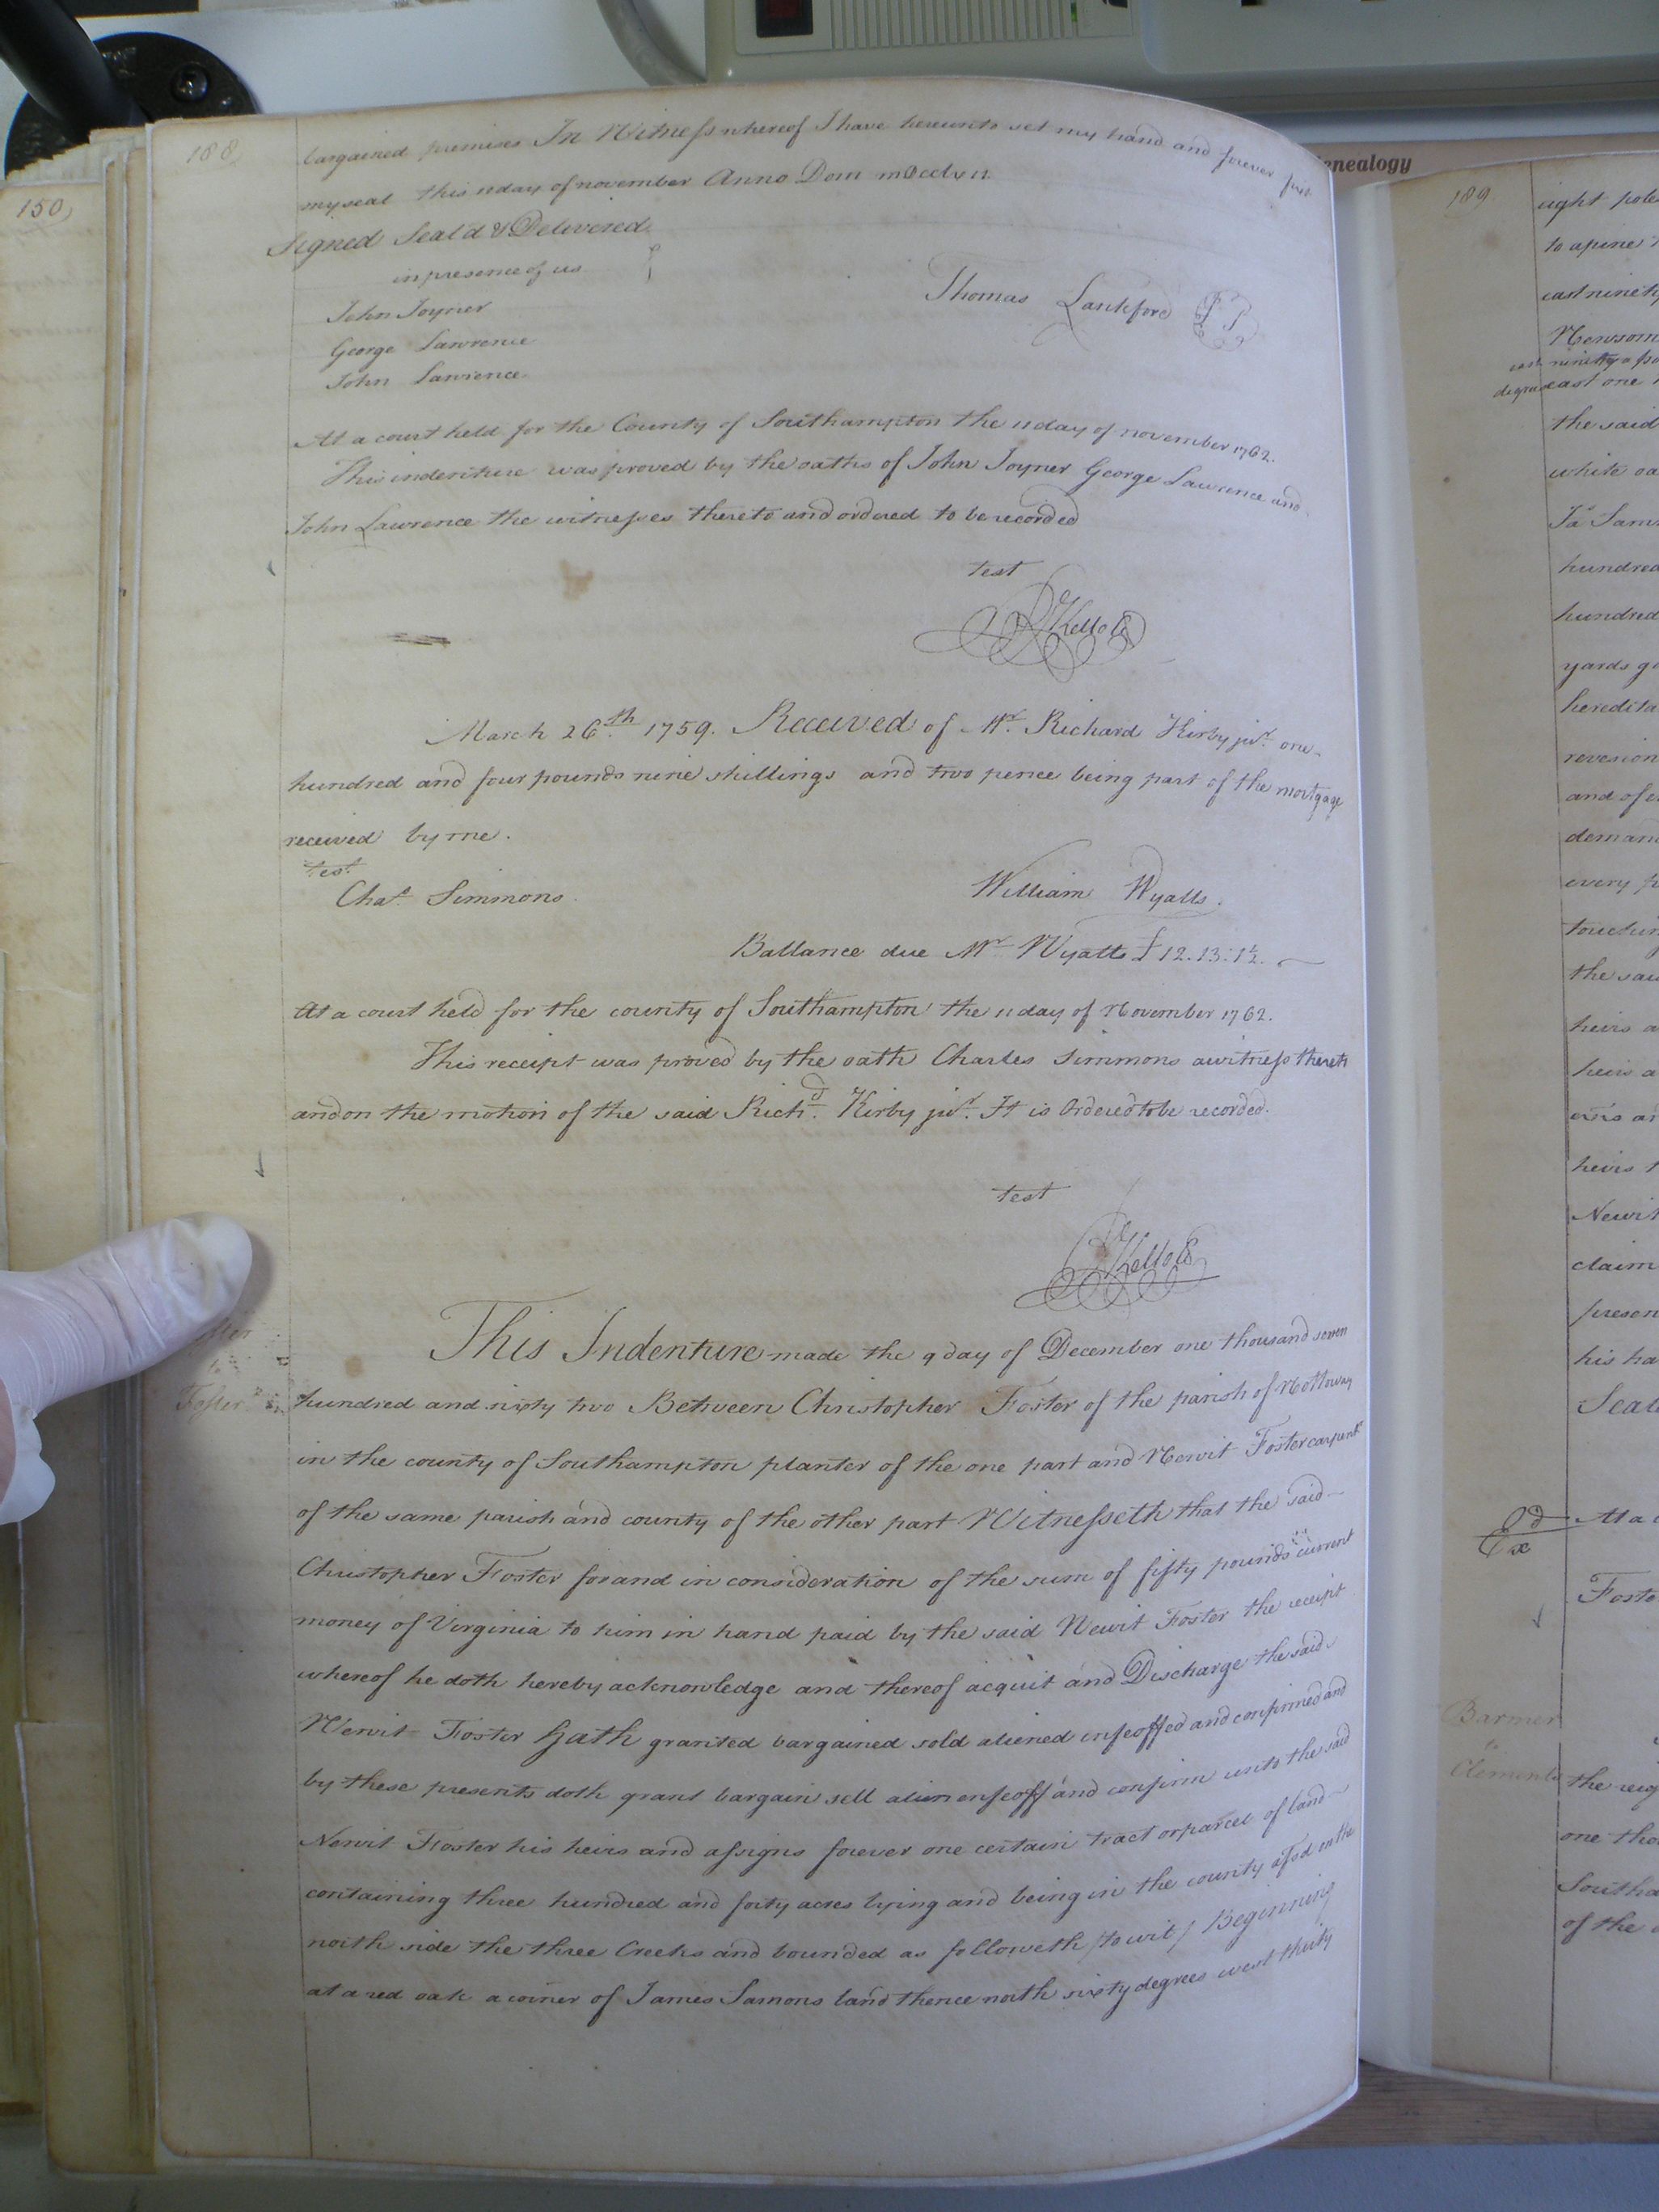 150
188
bargained premises In Witness whereof I have hereunto set my hand and forever fixt
my seal this 11 day of november Anno Dom
Signed Seal'd & Delivered
in presence of us
John Joyner
George Lawrence
John Lawrence
Thomas Lankford
At a court held for the County of Southampton the 11 day of november 1762.
This indenture was proved by the oaths of John Joyner George Lawrence and
John Lawrence the witnesses thereto and ordered to be recorded
test
Kello
March 26th 1759. Received of Mr Richard Kirby junr one
hundred and four pounds nine shillings and two pence being part of the mortgage
received by me.
test
Chas Simmons
William Wyatts.
Ballance due Mr Wyatts £12.13.1½.
At a court held for the county of Southampton the 11 day of November 1762.
This receipt was proved by the oath Charles Simmons a witness thereto
and on the motion of the said Richd Kirby junr It is Ordered to be recorded.
test
Kello
Foster
This Indenture made the 9 day of December one thousand seven
hundred and sixty two Between Christopher Foster of the parish of Nottoway
in the county of Southampton planter of the one part and Newit Foster carpentr
of the same parish and county of the other part Witnesseth that the said
Christopher Foster for and in consideration of the sum of fifty pounds current
money of Virginia to him in hand paid by the said Newit Foster the receipt
whereof he doth hereby acknowledge and thereof acquit and Discharge the said
Newit Foster Hath granted bargained sold aliened enfeoffed and confirmed and
by these presents doth grant bargain sell alien enfeoff and confirm unto the said
Newit Foster his heirs and assigns forever one certain tract or parcel of land
containing three hundred and forty acres lying and being in the county afsd on the
north side the three Creeks and bounded as followeth /to wit/ Beginning
at a red oak a corner of James Samons land thence north sixty degrees west thirty
enealogy
189
eight pole
to a pine
east ninety
Newsom
degrees east one
the said
white oa
Jas Sam
hundred
hundred
yards g
heredita
revesion
and of e
deman
every p
touchin
the said
heirs a
heirs a
heirs
Newit
claim
presen
his ha
Seal
At a
Foste
Barmer
to
Clements
the reig
one tho
Southa
of the